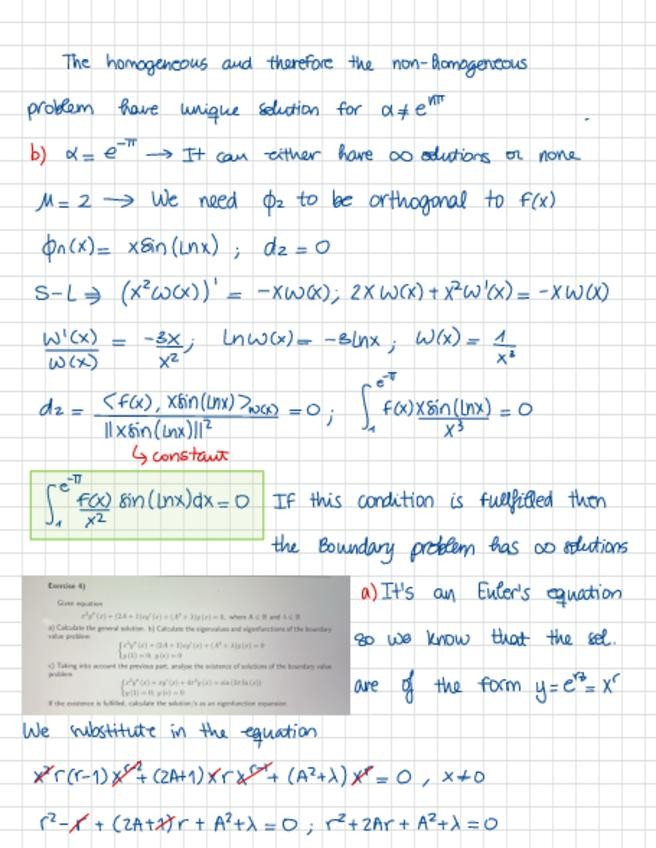 The homogeneous and therefore the non-homogeneous
problem have unique solution for α ≠ e^{nπ}
b) α = e^{-π} → It can either have ∞ solutions or none
M = 2 → We need ϕ₂ to be orthogonal to f(x)
ϕn(x) = x sin(Lnx) ; d₂ = 0
S-L ⇒ (x²ω(x))' = -xω(x); 2xω(x) + x²ω'(x) = -xω(x)
ω'(x)/ω(x) = -3x/x² ; Lnω(x) = -3lnx ; ω(x) = 1/x³
d₂ = <f(x), xsin(Lnx)>_{ω(x)} / ||xsin(Lnx)||² = 0 ; ∫₁^{e^{-π}} f(x)xsin(Lnx)/x³ = 0
↳ constant
∫₁^{e^{-π}} f(x)/x² sin(Lnx)dx = 0 If this condition is fullfilled then
the Boundary problem has ∞ solutions
Exercise 4)
Given equation
x²y''(x) + (2A + 1)xy'(x) + (A² + λ)y(x) = 0, where A ∈ ℝ and λ ∈ ℝ
a) Calculate the general solution. b) Calculate the eigenvalues and eigenfunctions of the boundary
value problem
x²y''(x) + (2A + 1)xy'(x) + (A² + λ)y(x) = 0
y(1) = 0, y(e) = 0
c) Taking into account the previous part, analyse the existence of solutions of the boundary value
problem
y(1) = 0, y(e) = 0
If the existence is fulfilled, calculate the solution/s as an eigenfunction expansion.
a) It's an Euler's equation
so we know that the sol.
are of the form y = e^{rz} = x^r
We substitute in the equation
x² r(r-1) x^{r-2} + (2A+1) x r x^{r-1} + (A²+λ) x^r = 0 , x ≠ 0
r² - r + (2A+1)r + A² + λ = 0 ; r² + 2Ar + A² + λ = 0